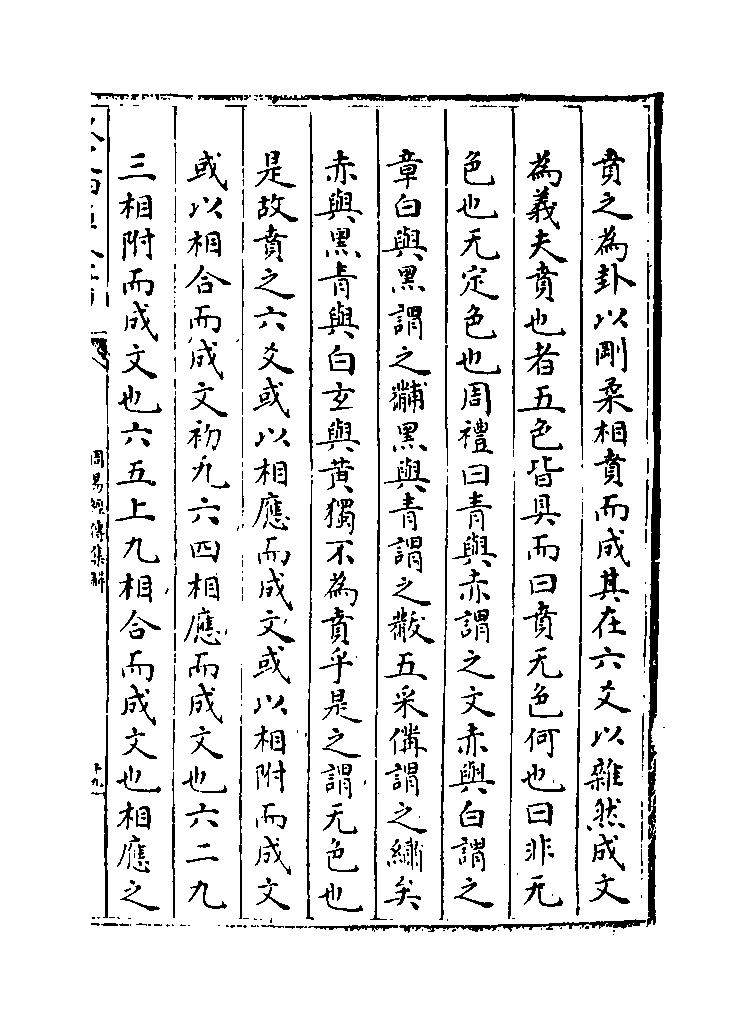 賁之為卦以剛柔相賁而成其在六爻以雜然成文
為義夫賁也者五色皆具而曰賁无色何也曰非无
色也无定色也周禮曰青與赤謂之文赤與白謂之
章白與黑謂之黼黑與青謂之黻五采備謂之繡矣
赤與黑青與白玄與黄獨不為賁乎是之謂无色也
是故賁之六爻或以相應而成文或以相附而成文
或以相合而成文初九六四相應而成文也六二九
三相附而成文也六五上九相合而成文也相應之
周易經傳集解
十九